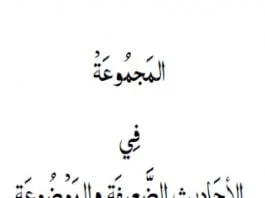 المَجمُوعَةْ
فِي
الأحَاديْث الضَّعِيفَة والمَوْضُوعَة